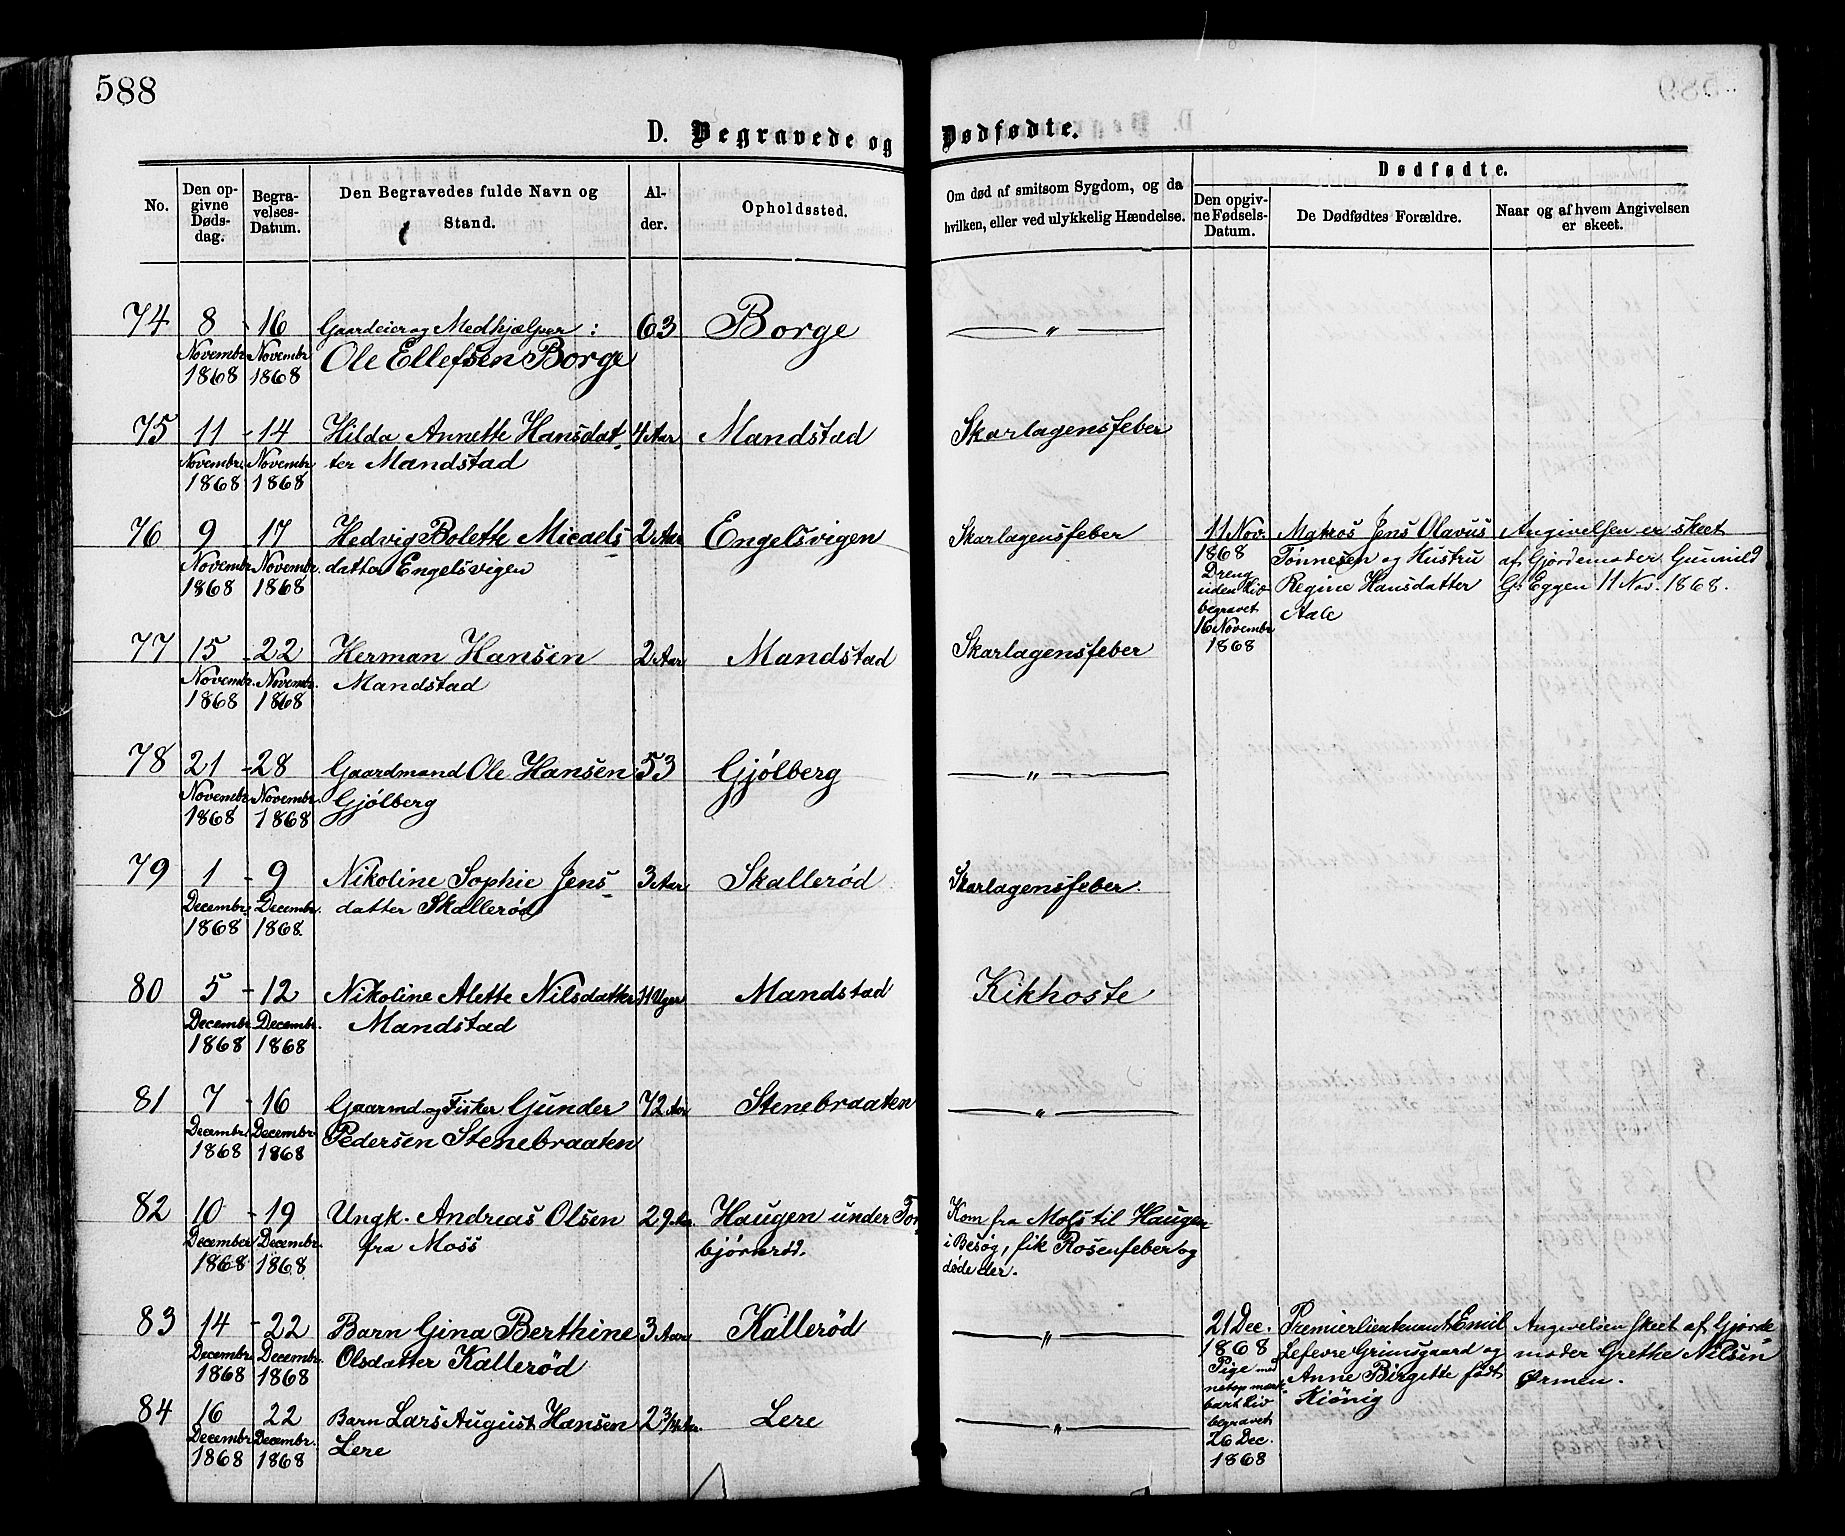 588
D. Begravede og Dødfødte.
No.
Den op-
givne
Døds-
dag.
Begra-
velses-
Datum.
Den Begravedes fulde Navn og
Stand.
Al-
der.
Opholdssted.
Om død af smitsom Sygdom, og da
hvilken, eller ved ulykkelig Hændelse.
Dødfødte.
Den opgiv-
ne Fødsels-
Datum.
De Dødfødtes Forældre.
Naar og af hvem Angivelsen
er skeet.
74 8 - 16 Gaardeier og Medhjælper : 63 Borge "
Novembr. Novembr. Ole Ellefsen Borge
1868 1868
75 11 - 14 Hilda Annette Hansdat- 4 Aar Mandstad Skarlagensfeber
Novembr. Novembr. ter Mandstad
1868 1868
76 9 17 Hedvig Bolette Micaels- 2 Aar Engelsvigen Skarlagensfeber
Novembr. Novembr. datter Engelsvigen
1868 1868
11 Nov.
1868
Dreng
uden Liv
begravet
16 Novembr
1868
Matros Jens Olavus
Tønnesen og Hustru
Regine Hansdatter
Aale
Angivelsen er skeet
af Gjordemoder Gunnild
G. Eggen 11 Nov. 1868.
77 15 - 22 Herman Hansen 2 Aar Mandstad Skarlagensfeber
Novembr. Novembr. Mandstad
1868 1868
78 21 - 28 Gaardmand Ole Hansen 53 Gjølberg "
Novembr. Novembr. Gjølberg
1868 1868
79 1 - 9 Nikoline Sophie Jens- 3 Aar Skallerød Skarlagensfeber.
Decembr. Decembr. datter Skallerød
1868 1868.
80 5 - 12 Nikoline Alette Nilsdatter Uger Mandstad Kikhoste
Decembr. Decembr. Mandstad
1868 1868
81 7 - 16 Gaarmd. og Fisker Gunder 72 Aar Stenebraaten "
Decembr. Decembr. Pedersen Stenebraaten
1868 1868
82 10 - 19 Ungk. Andreas Olsen 29 Aar Haugen under Tor-
December Decembr. fra Moss bjørnrød.
1868 1868
Kom fra Moss til Haugen
i Besøg, fik Rosenfeber og
døde der.
83 14 - 22 Barn Gina Berthine 3 Aar Kallerød "
Decembr. Decembr. Olsdatter Kallerød
1868 1868
21 Dec.
1868
Pige med
netop mærk-
bart Liv
begravet
26 Dec.
1868
Premierlieutenant Emil
Lefevre Grimsgaard og
Anne Birgette født
Kiönig
Angivelsen skeet af Gjorde-
moder Grethe Nilsen
Ørmen.
84 16 22 Barn Lars August Hansen 2 Lere "
Decembr. Decembr. Lere
1868 1868